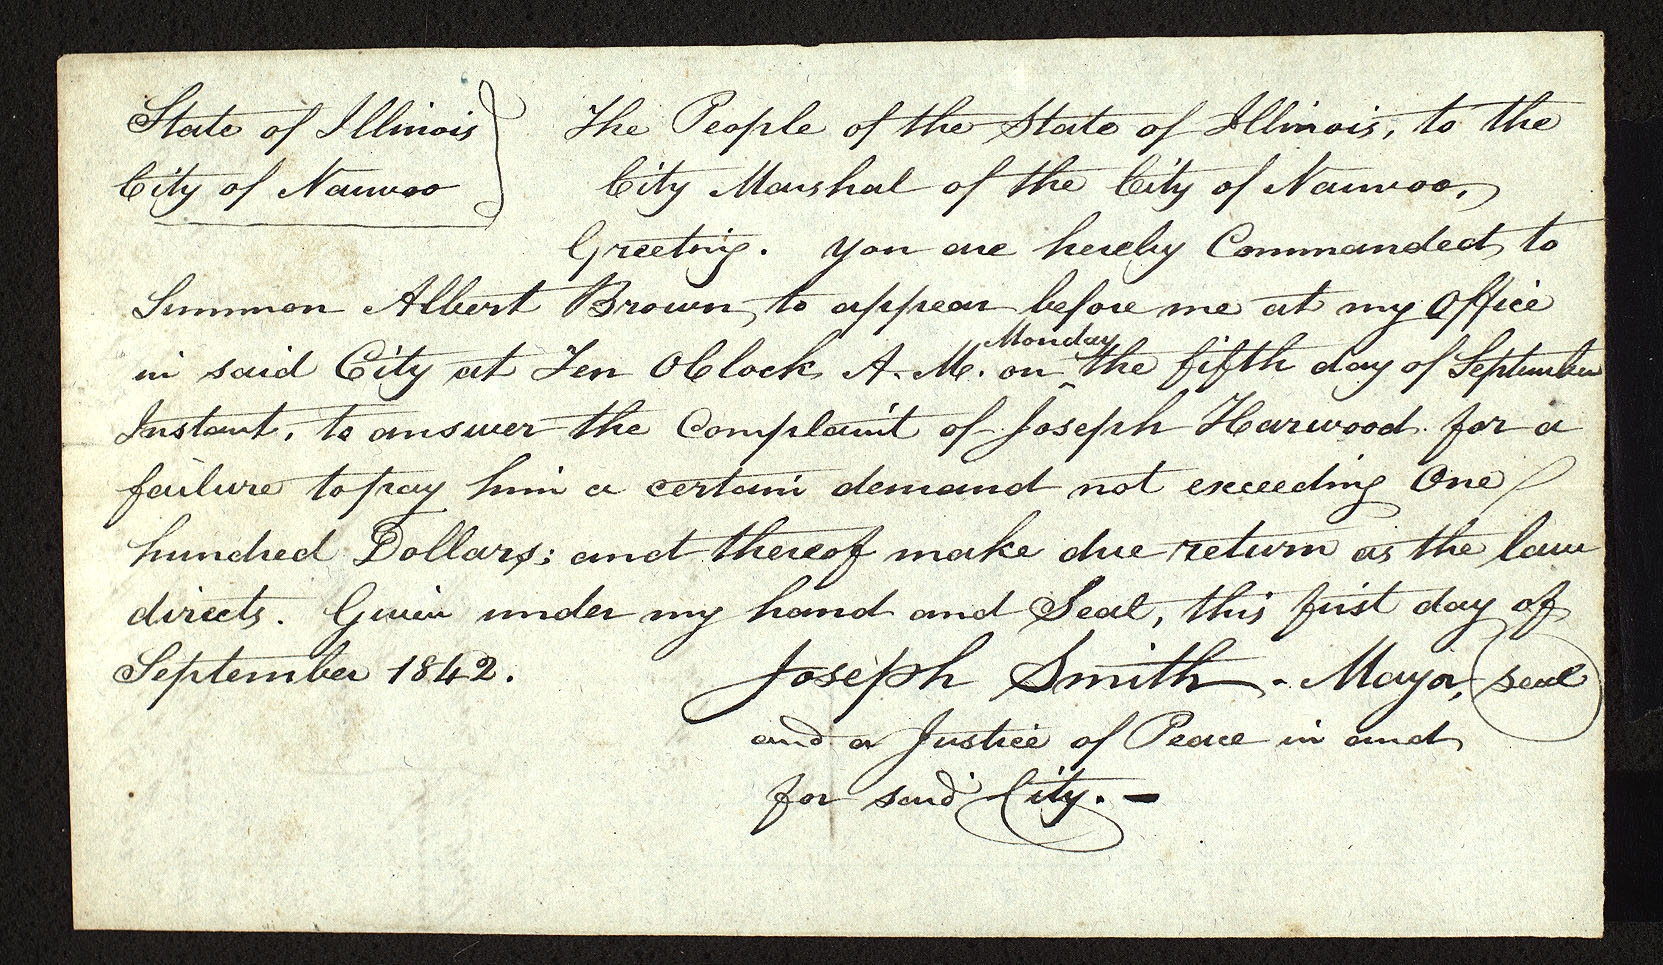 State of Illinois } The People of the State of Illinois, to the
City of Nauvoo City Marshal of the City of Nauvoo,
Greeting. You are hereby Commanded to
Summon Albert Brown, to appear before me at my Office
in said City at Ten OClock A. M. on ^Monday the fifth day of September
Instant, to answer the Complaint of Joseph Harwood for a
failure to pay him a certain demand not exceeding One
hundred Dollars; and thereof make due return as the law
directs. Given under my hand and Seal, this first day of
September 1842. Joseph Smith - Mayor, seal
and a Justice of Peace in and
for said City. —